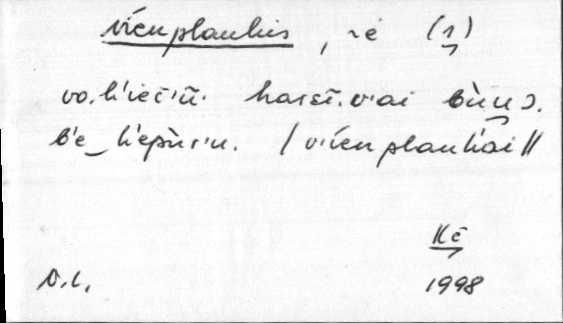 víenplaukis, -ė (1)
vo.k'iẽč'ũ. karšt.v'ai bùu ɔ.
b'e_k'epùr'u. / v'íenplaukai //
Kė
D.L. 1998